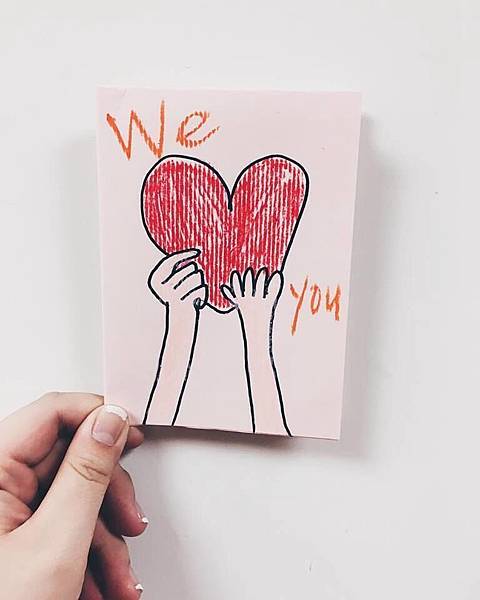 We
you